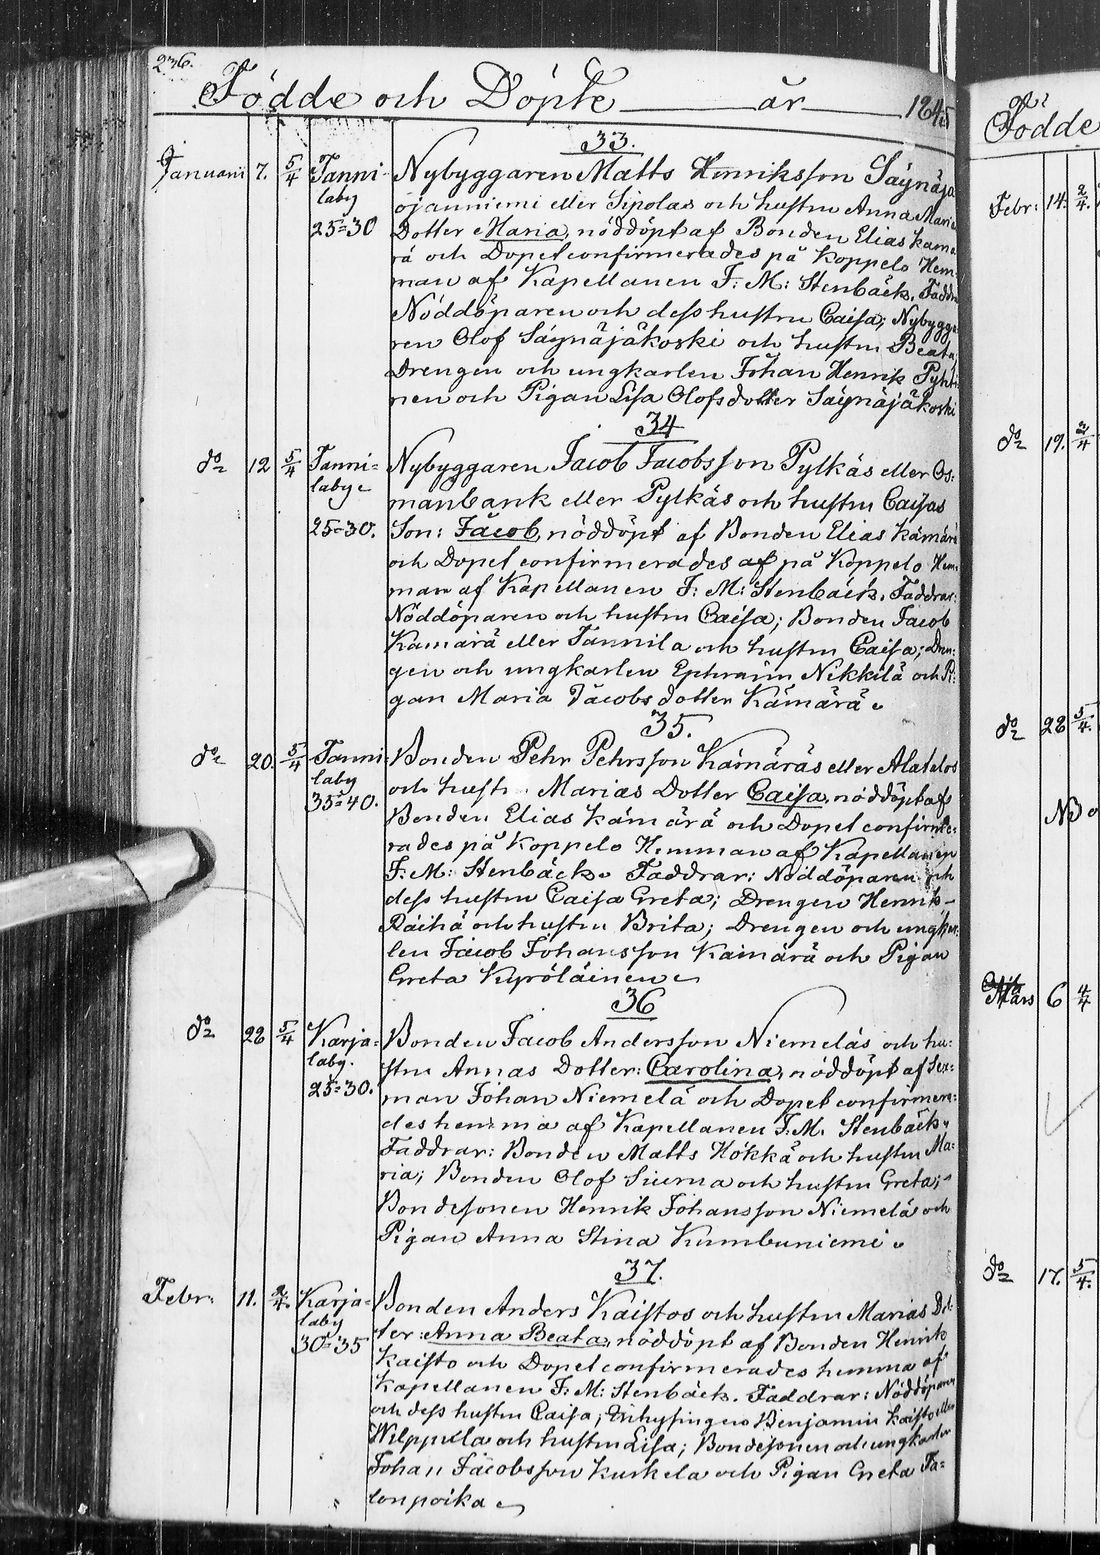 236.
Födde och Döpte år 1845
33.
Januarii 7. 5/4 Tanni- Nybyggaren Matts Henriksson Säynäja
laby ojanniemi eller Sipolas och hustru Anna Maria
25=30 Dotter Maria, nöddöpt af Bonden Elias Käma
rä och Dopet confirmerades på Koppelo Hem-
man af Kapellanen F: M: Stenbäck. Faddra
Nöddöparen och dess hustru Caisa; Nybygga
ren Olof Säynäjäkoski och hustru Beata,
Drengen och ungkarlen Johan Henrik Pyhti
nen och Pigan Lisa Olofsdotter Säynäjäkoski
34
do 12 5/4 Tanni= Nybyggaren Jacob Jacobsson Pylkäs eller Os-
laby manbank eller Pylkäs och hustru Caisas
25=30. Son: Jacob, nöddöpt af Bonden Elias Kämärä
och Dopet confirmerades af på Koppelo Hem-
man af Kapellanen F: M: Stenbäck. Faddrar:
Nöddöparen och hustru Caisa; Bonden Jacob
Kämärä eller Tannila och hustru Caisa; Dren-
gen och ungkarlen Ephraim Nikkilä och Pi-
gan Maria Jacobs dotter Kämärä
35.
do 20. 5/4 Tanni Bonden Pehr Pehrsson Kämäräs eller Alatalos
laby och hustr. Marias Dotter Caisa, nöddöpt af
35=40. Bonden Elias Kämärä och Dopet confirme-
rades på Koppelo Hemman af Kapellanen
F: M: Stenbäck. Faddrar: Nöddöparen och
dess hustru Caisa Greta; Drengen Henrik
Räihä och hustru Brita; Drengen och ungkar-
len Jacob Johansson Kämärä och Pigan
Greta Kyröläinen
36
do 28 5/4 Karja= Bonden Jacob Andersson Niemeläs och hu-
laby. stru Annas Dotter: Carolina, nöddöpt af Sex-
25=30. man Johan Niemelä och Dopet confirmera-
des hemma af Kapellanen F: M. Stenbäck.
Faddrar: Bonden Matts Hökkä och hustru Ma-
ria; Bonden Olof Siurua och hustru Greta;
Bondesonen Henrik Johansson Niemelä och
Pigan Anna Stina Kumbuniemi
37.
Febr: 11. 2/4. Karja= Bonden Anders Kaistos och hustru Marias Dot-
laby ter: Anna Beata, nöddöpt af Bonden Henrik
30=35 Kaisto och Dopet confirmerades hemma af
Kapellanen F: M: Stenbäck. Faddrar: Nöddöparen
och dess hustru Caisa; Inhysingen Benjamin Kaisto eller
Wilppula och hustru Lisa; Bondesonen och ungkarlen
Johan Jacobsson Kuskela och Pigan Greta Ta=
lonpoika
Födde
Febr: 14. 2/4.
do 19. 2/4
do 28 5/4.
NB
Mars 6 4/4
do 17. 5/4.